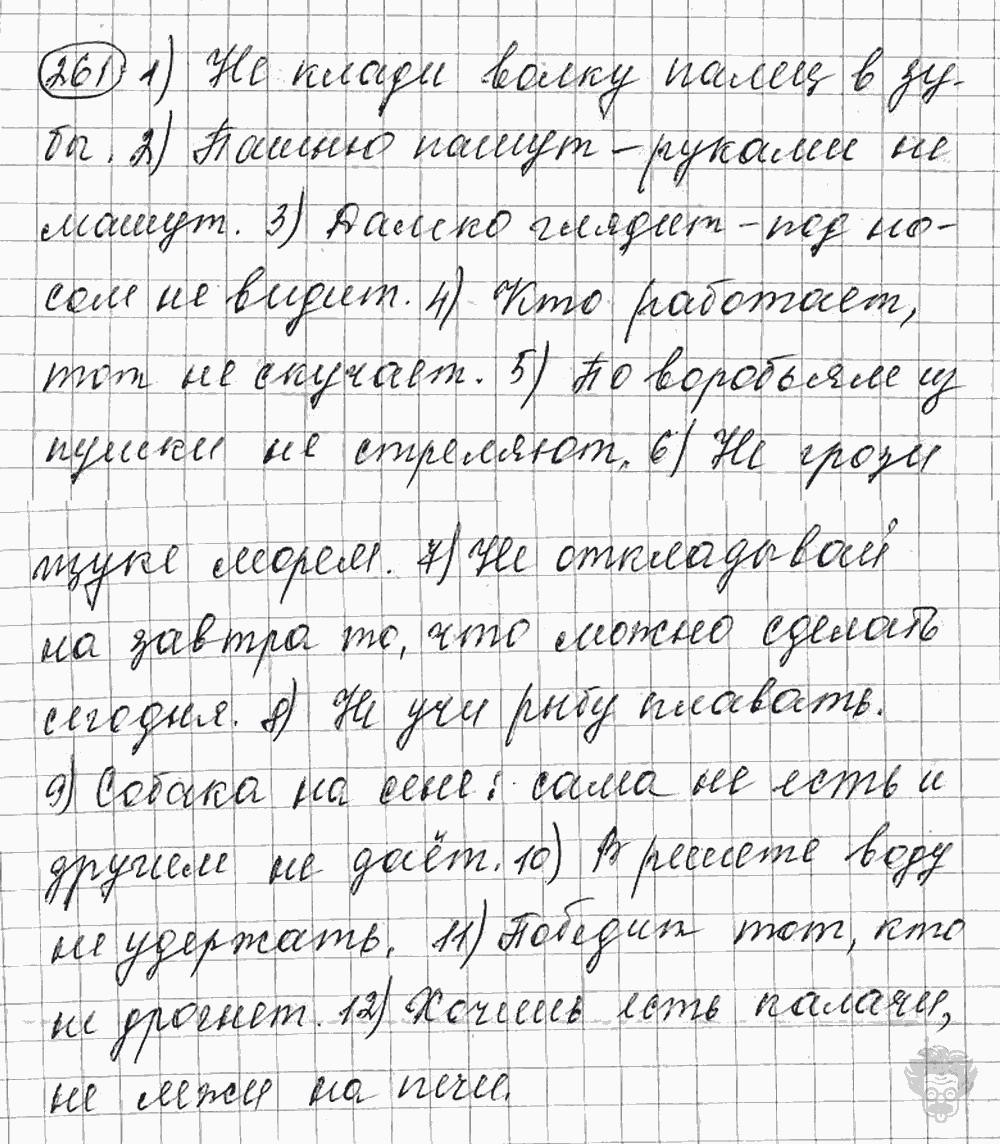 261 1) Не клади волку палец в зу-
бы. 2) Пашню пашут – руками не
машут. 3) Далеко глядит – под но-
сом не видит. 4) Кто работает,
тот не скучает. 5) По воробьям из
пушки не стреляют. 6) Не грози
щуке морем. 7) Не откладывай
на завтра то, что можно сделать
сегодня. 8) Не учи рыбу плавать.
9) Собака на сене: сама не есть и
другим не даёт. 10) В решете воду
не удержать. 11) Победит тот, кто
не дрогнет. 12) Хочешь есть калачи,
не лежи на печи.